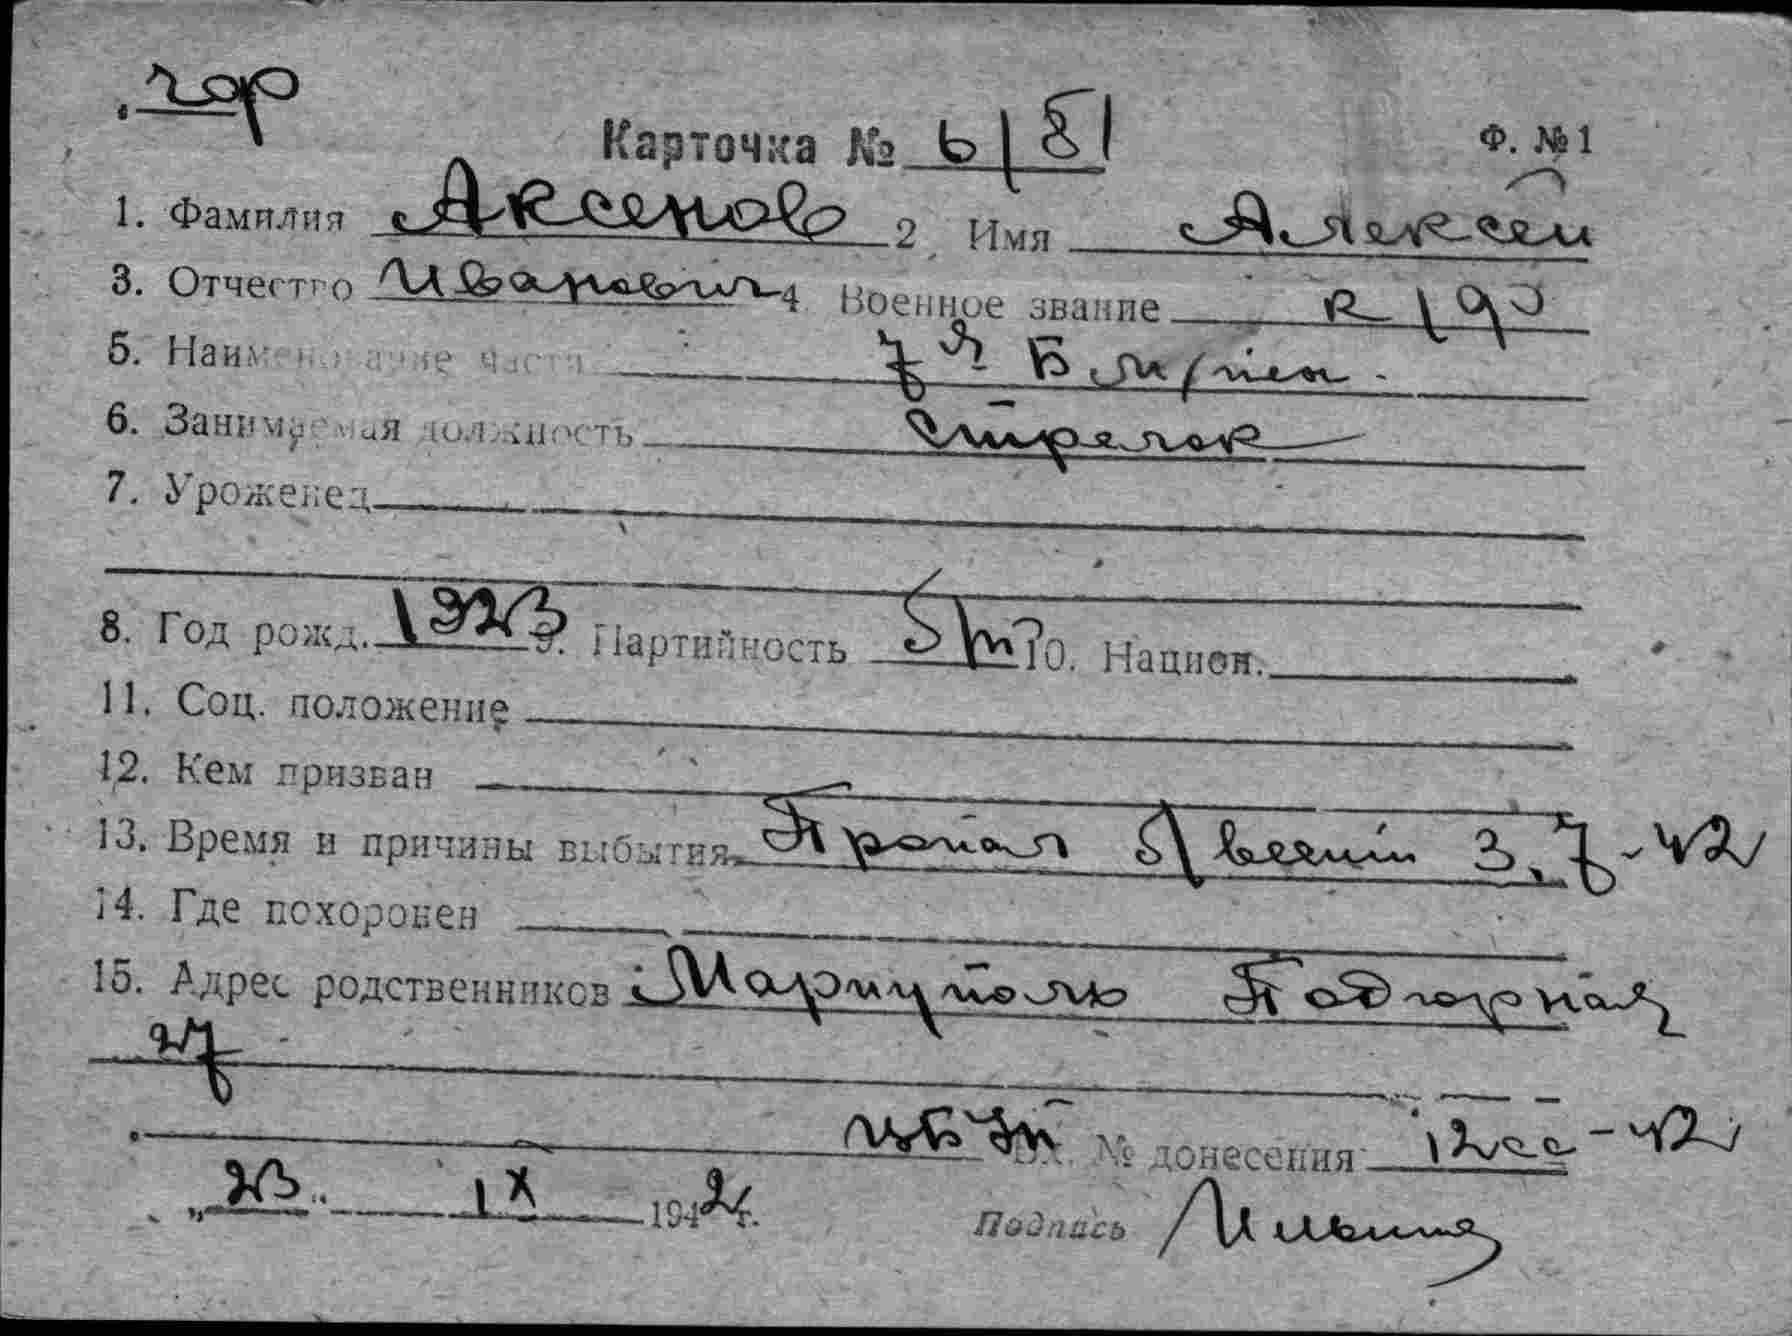 гор
Карточка № б/81 Ф. № 1
1. Фамилия Аксенов 2. Имя Алексей
3. Отчество Иванович 4. Военное звание к/ф
5. Наименование части 7я Б м/пех.
6. Занимаемая должность Стрелок
7. Уроженец
8. Год рожд. 1923 9. Партийность б/п 10. Национ.
11. Соц. положение
12. Кем призван
13. Время и причины выбытия Пропал б/вести 3.7-42
14. Где похоронен
15. Адрес родственников Мариуполь Подгорная
27
Вх. № донесения 12сс-42
„23“ IX 1942г. Подпись Ильина